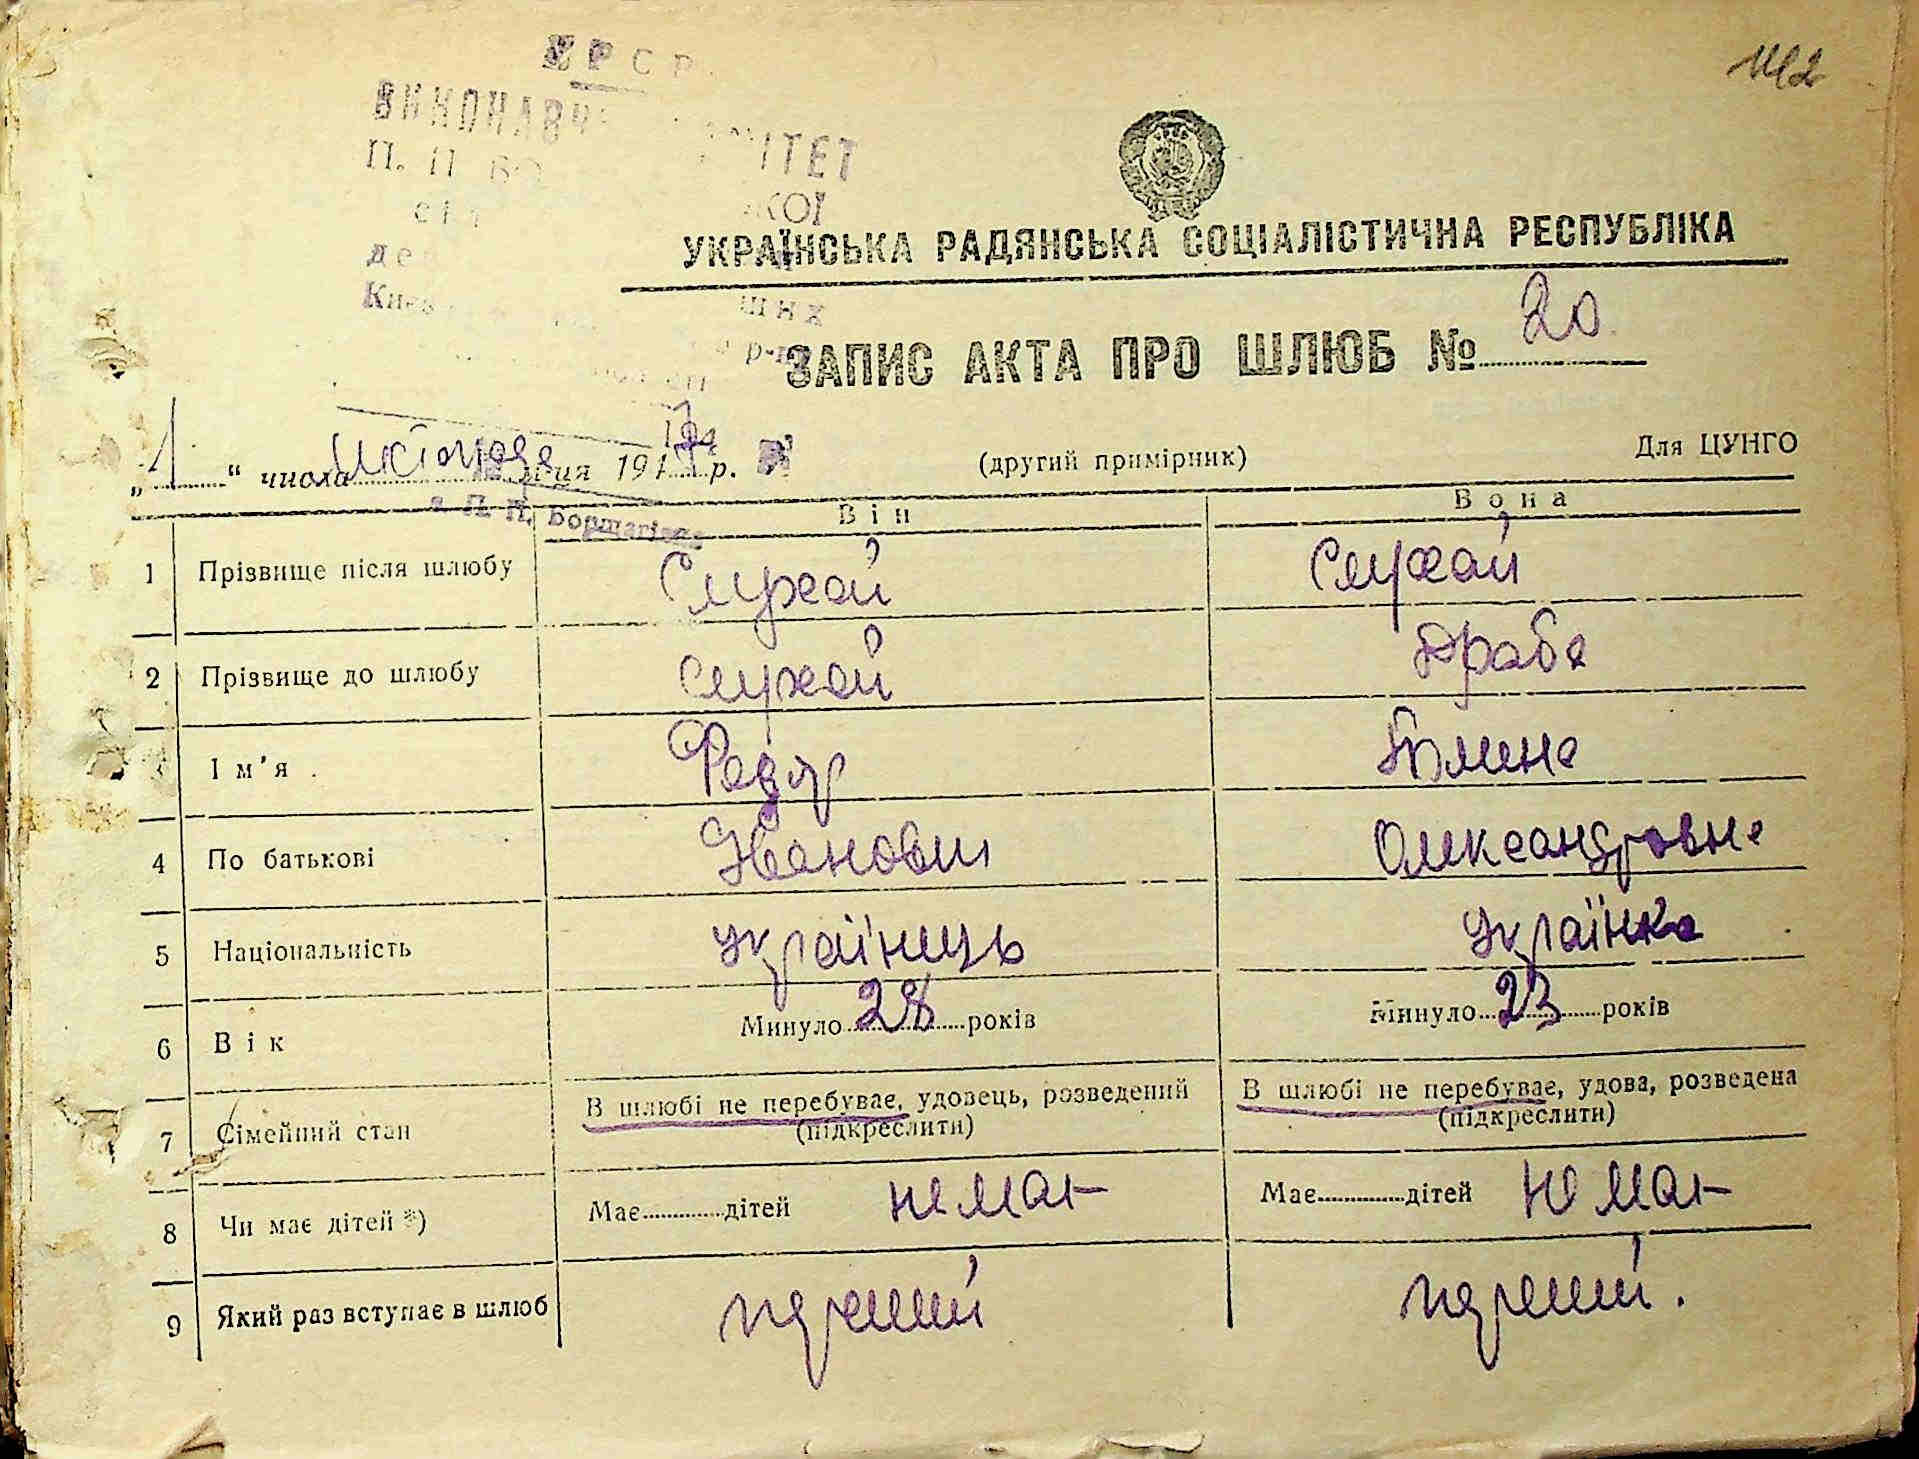 УРСР
УКРАЇНСЬКА РАДЯНСЬКА СОЦІАЛІСТИЧНА РЕСПУБЛІКА
ЗАПИС АКТА ПРО ШЛЮБ № 20
„1“ числа місяця 194 р.
(другий примірник)
Для ЦУНГО
П. П. Борщагівка
Він Вона
1 Прізвище після шлюбу Слухай Слухай
2 Прізвище до шлюбу Слухай Драба
3 Ім'я Федір
4 По батькові Іванович Олександровна
5 Національність українець українка
6 Вік Минуло 28 років Минуло 23 років
7 Сімейний стан В шлюбі не перебуває, удовець, розведений (підкреслити) В шлюбі не перебуває, удова, розведена (підкреслити)
8 Чи має дітей *) Має дітей не має Має дітей не має
9 Який раз вступає в шлюб перший перший.